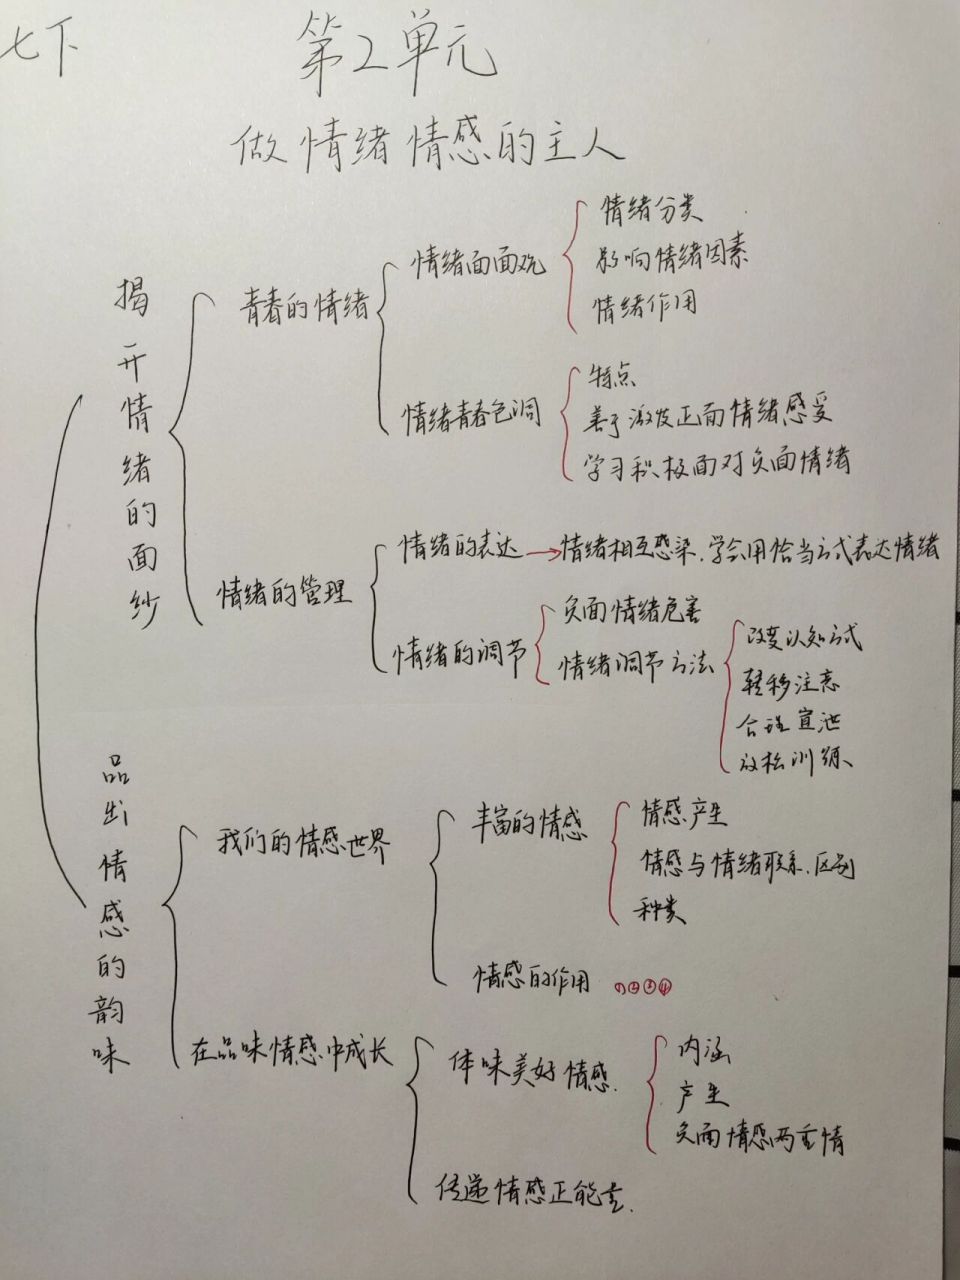 七下
第2单元
做情绪情感的主人
揭开情绪的面纱
青春的情绪
情绪面面观
情绪分类
影响情绪因素
情绪作用
情绪青春色调
特点
善于激发正面情绪感受
学习积极面对负面情绪
情绪的管理
情绪的表达→情绪相互感染.学会用恰当方式表达情绪
情绪的调节
负面情绪危害
情绪调节方法
改变认知方式
转移注意
合理宣泄
放松训练
品出情感的韵味
我们的情感世界
丰富的情感
情感产生
情感与情绪联系.区别
种类
情感的作用 ①②③④
在品味情感中成长
体味美好情感.
内涵
产生
负面情感两重情
传递情感正能量.